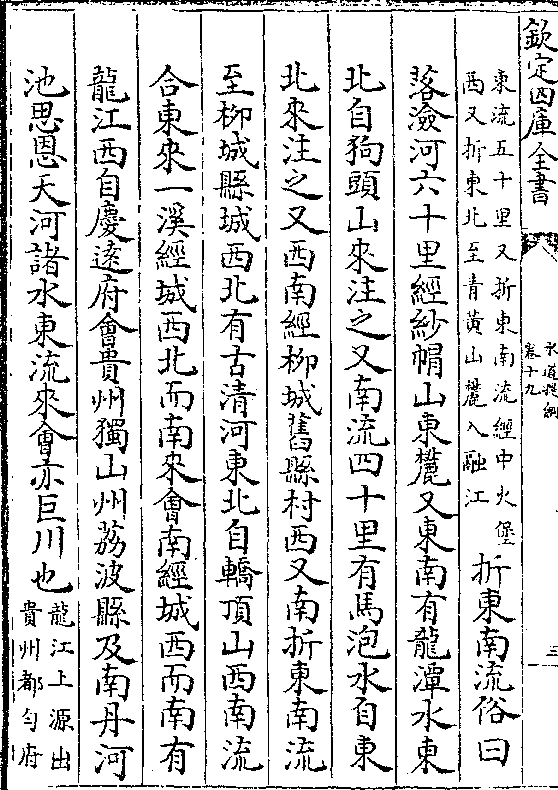 欽定四庫全書
水道提綱
卷十九
三
東流五十里又折東南流經中火堡
西又折東北至青黃山麓入融江
折東南流俗曰
落澰河六十里經紗帽山東麓又東南有龍潭水東
北自狗頭山來注之又南流四十里有馬泡水自東
北來注之又西南經柳城舊縣村西又南折東南流
至柳城縣城西北有古清河東北自轎頂山西南流
合東來一溪經城西北而南來會南經城西而南有
龍江西自慶遠府會貴州獨山州荔波縣及南丹河
池思恩天河諸水東流來會亦巨川也
龍江上源出
貴州都勻府